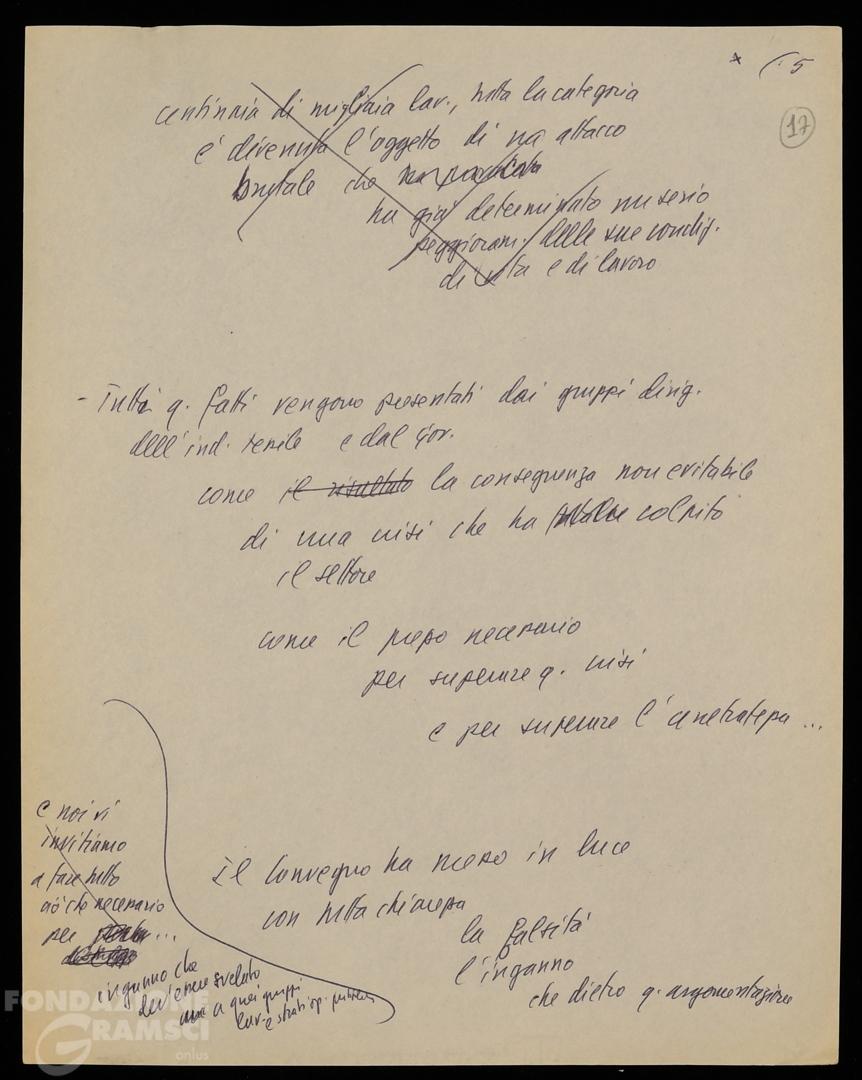 * (. 5
17
centinaia di migliaia lav., tutta la categoria
è divenuta l'oggetto di un attacco
brutale che
ha già determinato un serio
peggioram. delle sue condiz.
di vita e di lavoro
- Tutti q. fatti vengono presentati dai gruppi dirig.
dell'ind. tessile e dal gov.
come il risultato la conseguenza non evitabile
di una crisi che ha colpito
il settore
come il prezzo necessario
per superare q. crisi
e per superare l'arretratezza ...
e noi vi
invitiamo
a fare tutto
ciò che necessario
per ...
Il Convegno ha messo in luce
con tutta chiarezza
la falsità
l'inganno
che dietro q. argomentazione
inganno che
dev'essere svelato
a quei gruppi
lav. e strati op. pubblica
FONDAZIONE
GRAMSCI
onlus